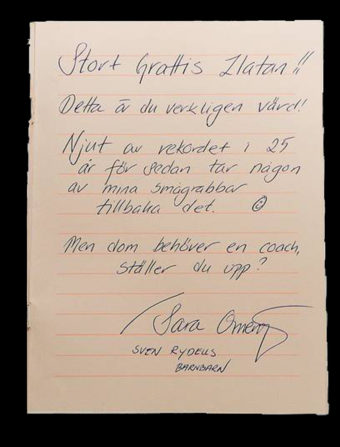 Stort Grattis Zlatan!!
Detta är du verkligen värd!
Njut av rekordet i 25
år för sedan tar någon
av mina smågrabbar
tillbaka det. ☺
Men dom behöver en coach,
ställer du upp?
Sara
SVEN RYDELLS
BARNBARN